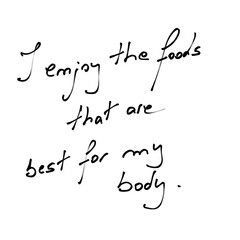 I enjoy the foods
that are
best for my
body.